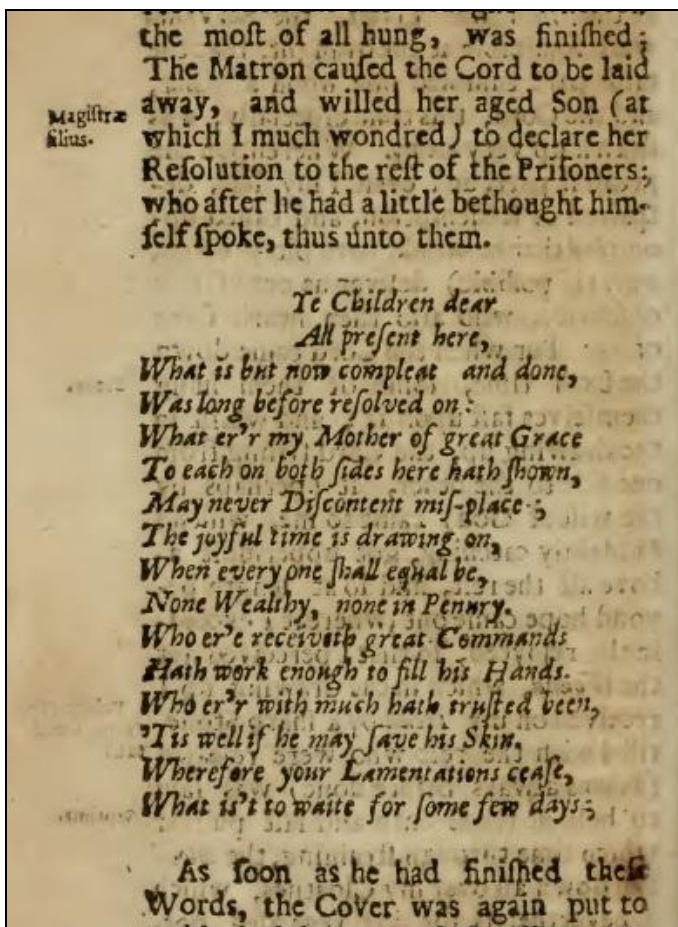 the moſt of all hung, was finiſhed;
The Matron cauſed the Cord to be laid
away, and willed her aged Son (at
Magiſtræ
filius.
which I much wondred) to declare her
Reſolution to the reſt of the Priſoners;
who after he had a little bethought him-
ſelf ſpoke, thus unto them.
Ye Children dear
All preſent here,
What is but now compleat and done,
Was long before reſolved on:
What er'r my Mother of great Grace
To each on both ſides here hath ſhown,
May never Diſcontent miſ-place;
The joyful time is drawing on,
When every one ſhall equal be,
None Wealthy, none in Penury.
Who er'e receiveth great Commands
Hath work enough to fill his Hands.
Who er'r with much hath truſted been,
'Tis well if he may ſave his Skin.
Wherefore your Lamentations ceaſe,
What is't to waite for ſome few days;
As ſoon as he had finiſhed theſe
Words, the Cover was again put to